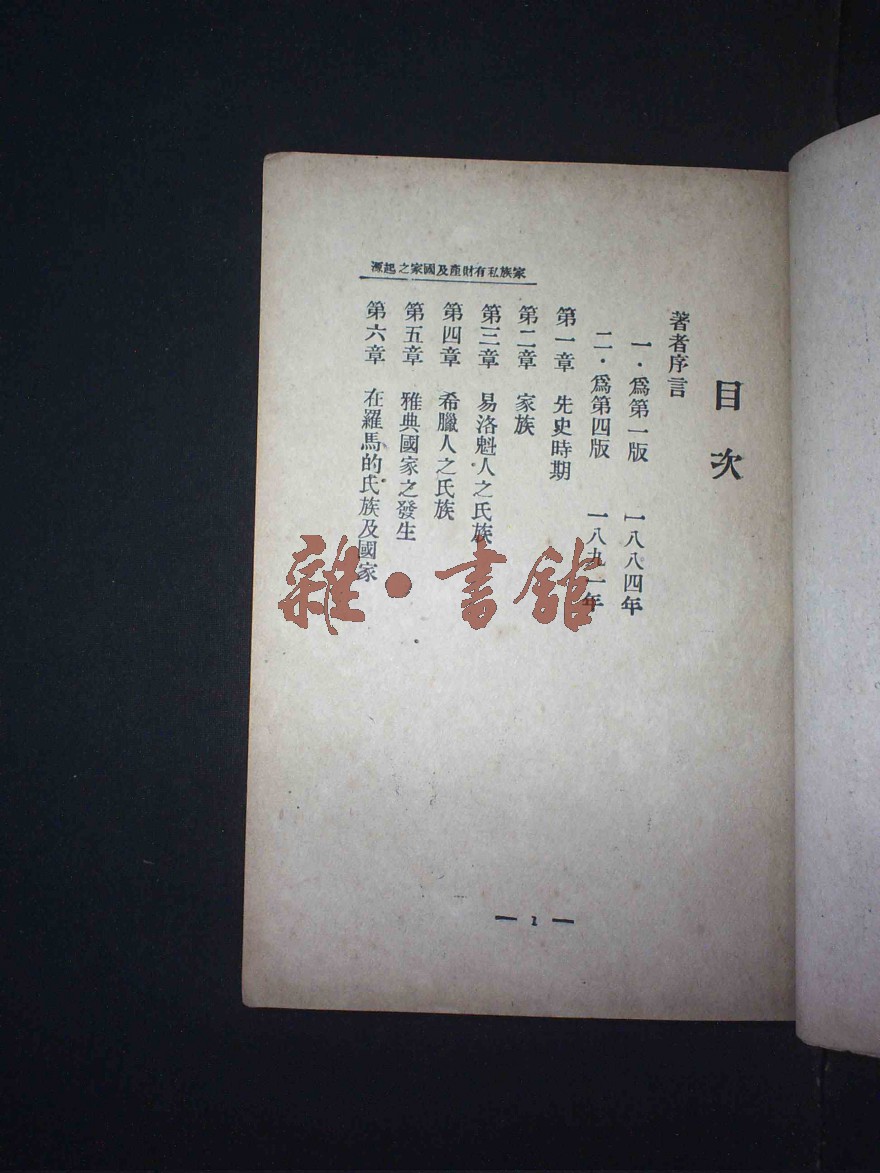 家族私有財產及國家之起源
目次
著者序言
一·爲第一版 一八八四年
二·爲第四版 一八九一年
第一章 先史時期
第二章 家族
第三章 易洛魁人之氏族
第四章 希臘人之氏族
第五章 雅典國家之發生
第六章 在羅馬的氏族及國家
雜·書館
— 1 —